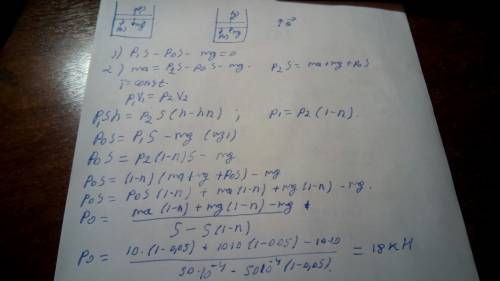 P₀S
1) P₁S - P₀S - mg = 0
2) ma = P₂S - P₀S - mg. P₂S = ma + mg + P₀S
T = const.
P₁V₁ = P₂V₂
P₁Sh = P₂S(h - hn) ; P₁ = P₂(1-n).
P₀S = P₁S - mg (из 1)
P₀S = P₂(1-n)S - mg
P₀S = (1-n)(ma + mg + P₀S) - mg
P₀S = P₀S(1-n) + ma(1-n) + mg(1-n) - mg.
P₀ = ma(1-n) + mg(1-n) - mg / S - S(1-n)
P₀ = 10·(1-0,05) + 10·10(1-0,05) - 10·10 / 50·10⁻⁴ - 50·10⁻⁴(1-0,05) = 18 кН